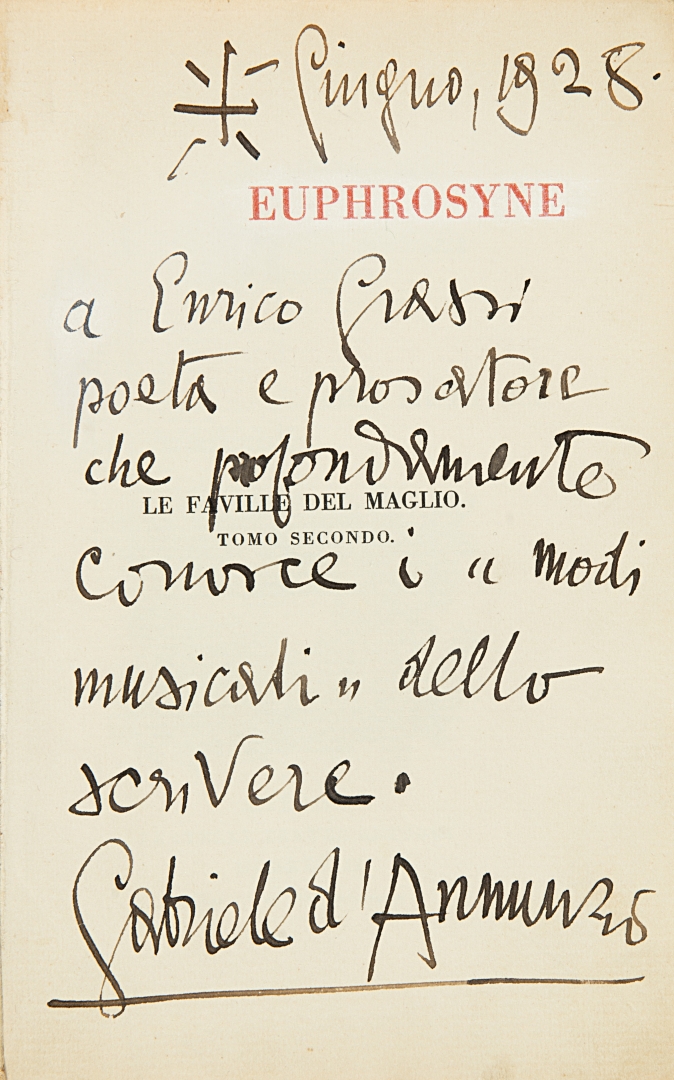 Giugno, 1928.
EUPHROSYNE
a Enrico Grassi
poeta e prosatore
che profondamente
LE FAVILLE DEL MAGLIO.
TOMO SECONDO.
conosce i “ modi
musicali „ dello
scrivere.
Gabriele d'Annunzio